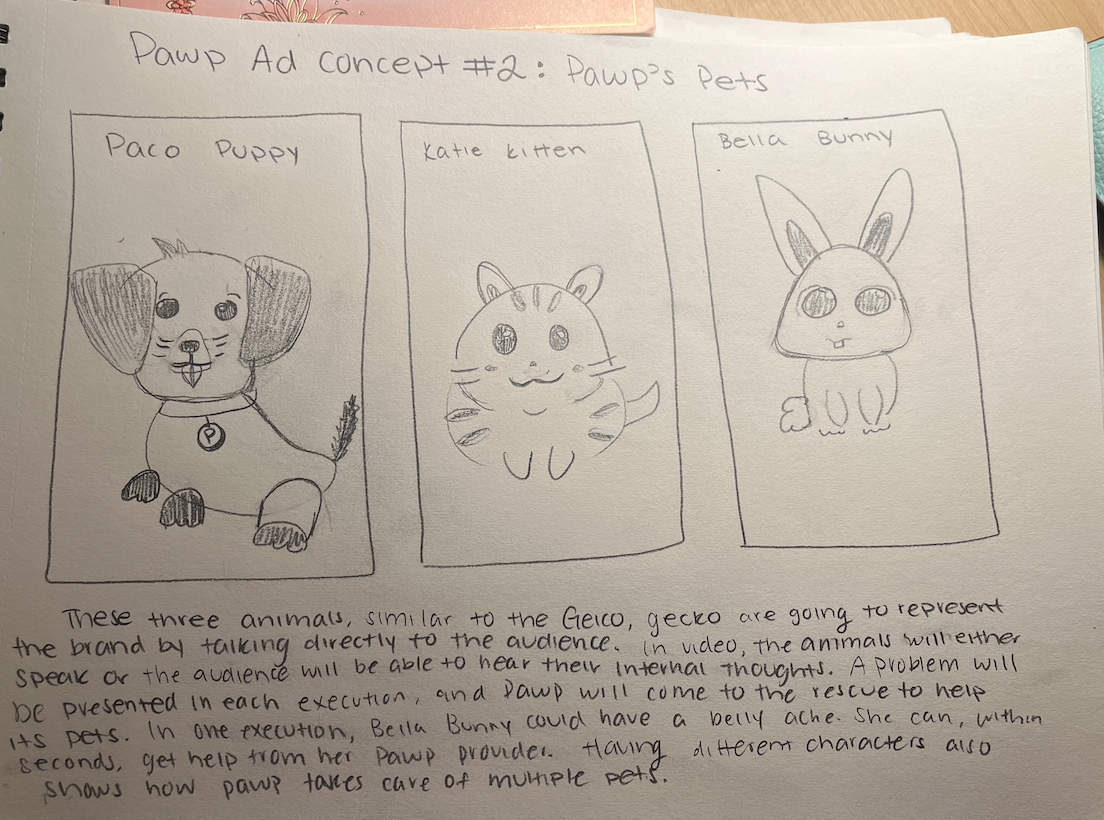 Pawp Ad Concept #2: Pawp's Pets
Paco Puppy
Katie Kitten
Bella Bunny
P
These three animals, similar to the Geico, gecko are going to represent
the brand by talking directly to the audience. In video, the animals will either
speak or the audience will be able to hear their internal thoughts. A problem will
be presented in each execution, and Pawp will come to the rescue to help
its pets. In one execution, Bella Bunny could have a belly ache. She can, within
seconds, get help from her Pawp provider. Having different characters also
shows how pawp takes care of multiple pets.